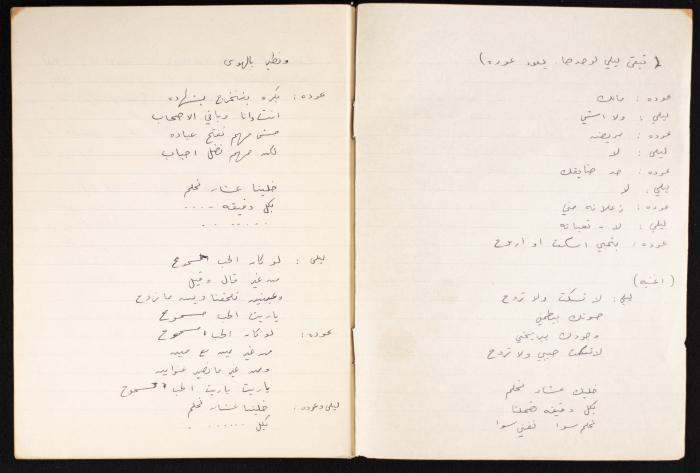 ( تبقى ليلى لوحدها يعود عوده )
عوده : مالك
ليلى : ولا اشي
عوده : مريضه
ليلى : لا
عوده : حد ضايقك
ليلى : لا
عوده : زعلانه مني
ليلى : لا - تعبانه
عوده : بتحبي اسكت او اروح
( اغنيه )
ليلى : لا تسكت ولا تروح
صوتك بيطمني
وجودك بيريحني
لا تسكت حبيبي ولا تروح
خليك عشان نحلم
بكل دقيقه
نحلم سوا نغني سوا
ونطير بالهوى
عوده : بكره بنتخرج بشهاده
انت وانا وباقي الاصحاب
مش مهم نفتح عياده
لكن مهم نضل احباب
خلينا عشان نحلم
بكل دقيقه ....
ليلى : لو كان الحب مسموح
من غير قال وقيل
وين ما نروح
يا ريت الحب مسموح
عوده : لو كان الحب مسموح
من غير مين مع مين
ومن غير ما نصير عناوين
يا ريت يا ريت الحب مسموح
ليلى وعوده : خلينا عشان نحلم
بكل .......